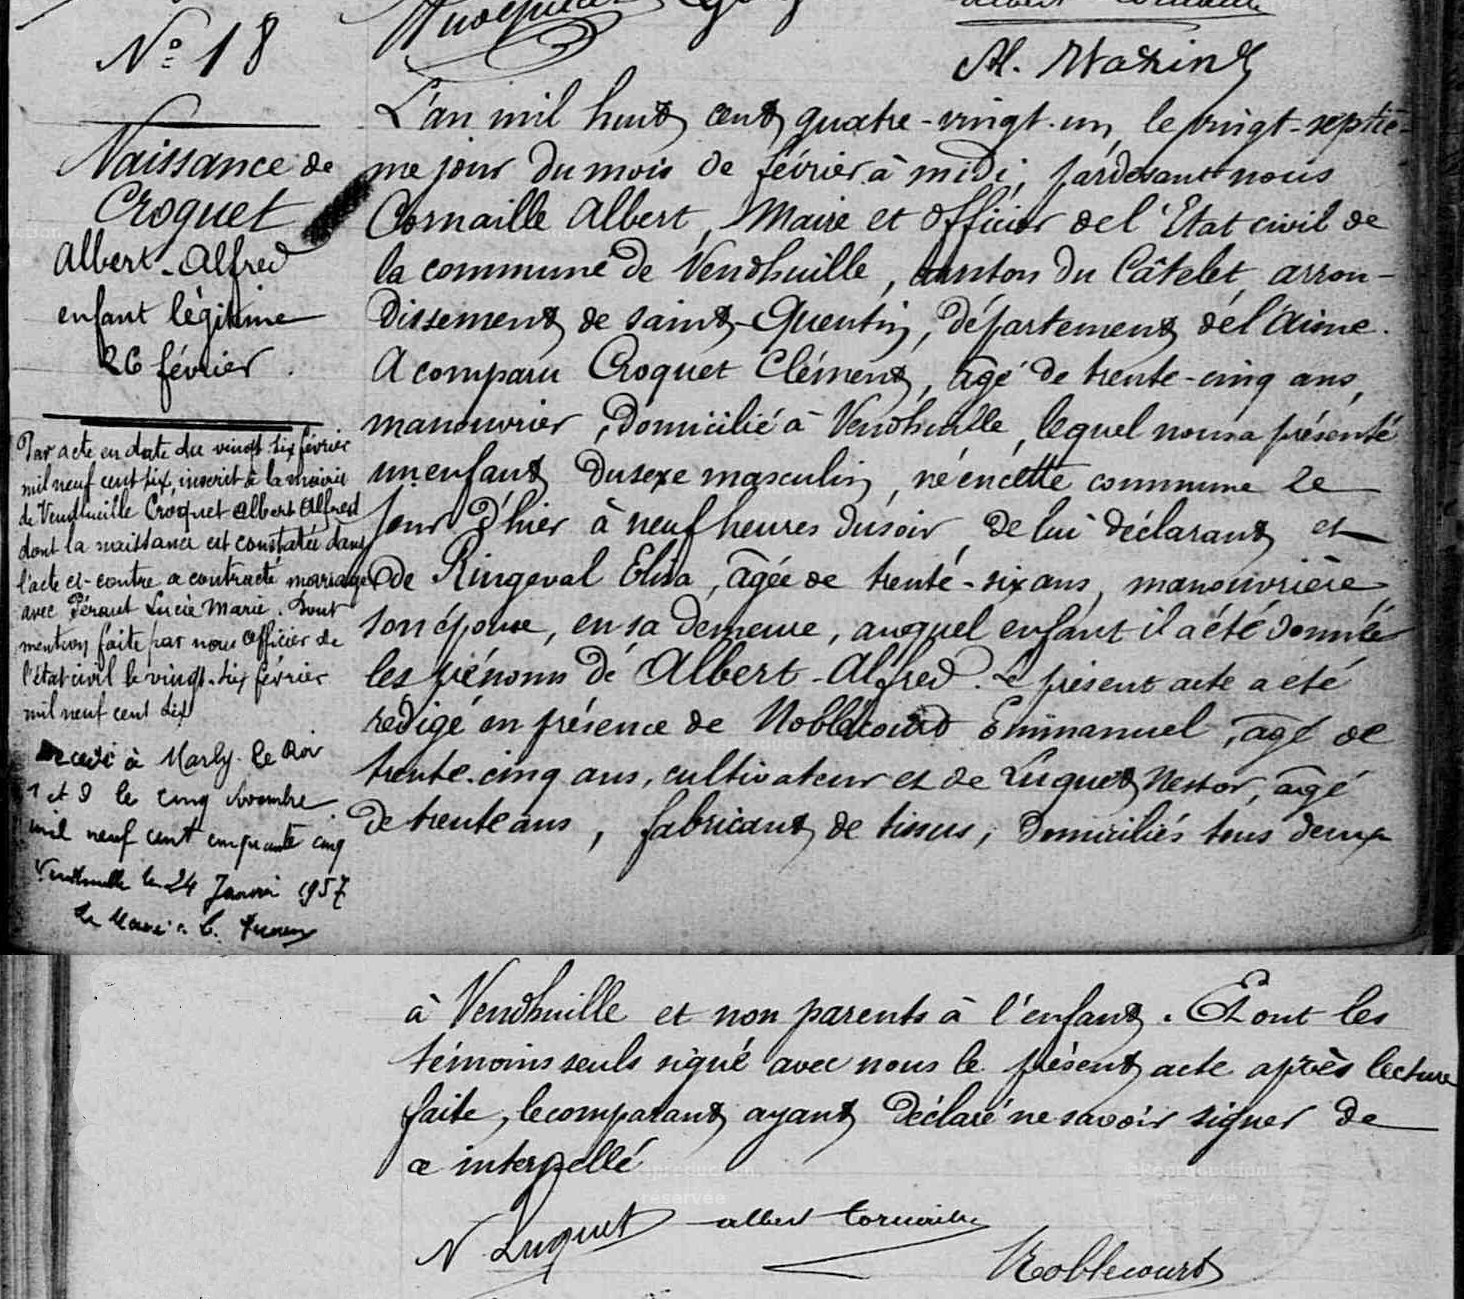 Albert Cornaille
N° 18
Al. Mazind
Naissance de
Croquet
Albert-Alfred
enfant légitime
26 février.
Par acte en date du vingt-six février
mil neuf cent six, inscrit à la mairie
de Vendhuille Croquet Albert Alfred
dont la naissance est constatée dans
l'acte ci-contre a contracté mariage
avec Péraut Lucie Marie. Dont
mention faite par nous Officier de
l'état civil le vingt-six février
mil neuf cent six
Décédé à Marly-le-Roi
S et O le cinq Novembre
mil neuf cent cinquante cinq
Vendhuille le 24 Janvier 1957
Le Maire
L'an mil huit cent quatre-vingt-un, le vingt-septiè-
me jour du mois de février à midi, pardevant nous
Cornaille Albert, Maire et officier de l'Etat civil de
la commune de Vendhuille, canton du Câtelet, arron-
dissement de saint-Quentin, département de l'Aisne.
A comparu Croquet Clément, âgé de trente-cinq ans,
manouvrier, domicilié à Vendhuille, lequel nous a présenté
un enfant du sexe masculin, né en cette commune le
jour d'hier à neuf heures du soir, de lui déclarant et
de Ringeval Elisa, âgée de trente-six ans, manouvrière,
son épouse, en sa demeure, auquel enfant il a été donné
les prénoms de Albert-Alfred. Le présent acte a été
rédigé en présence de Noblécourt Emmanuel, âgé de
trente-cinq ans, cultivateur et de Luquet Nestor, âgé
de trente ans, fabricant de tissus, domiciliés tous deux
à Vendhuille et non parents à l'enfant. Et ont les
témoins seuls signé avec nous le présent acte après lecture
faite, le comparant ayant déclaré ne savoir signer de
ce interpellé
N Luquet
albert Cornaille
Noblecourt